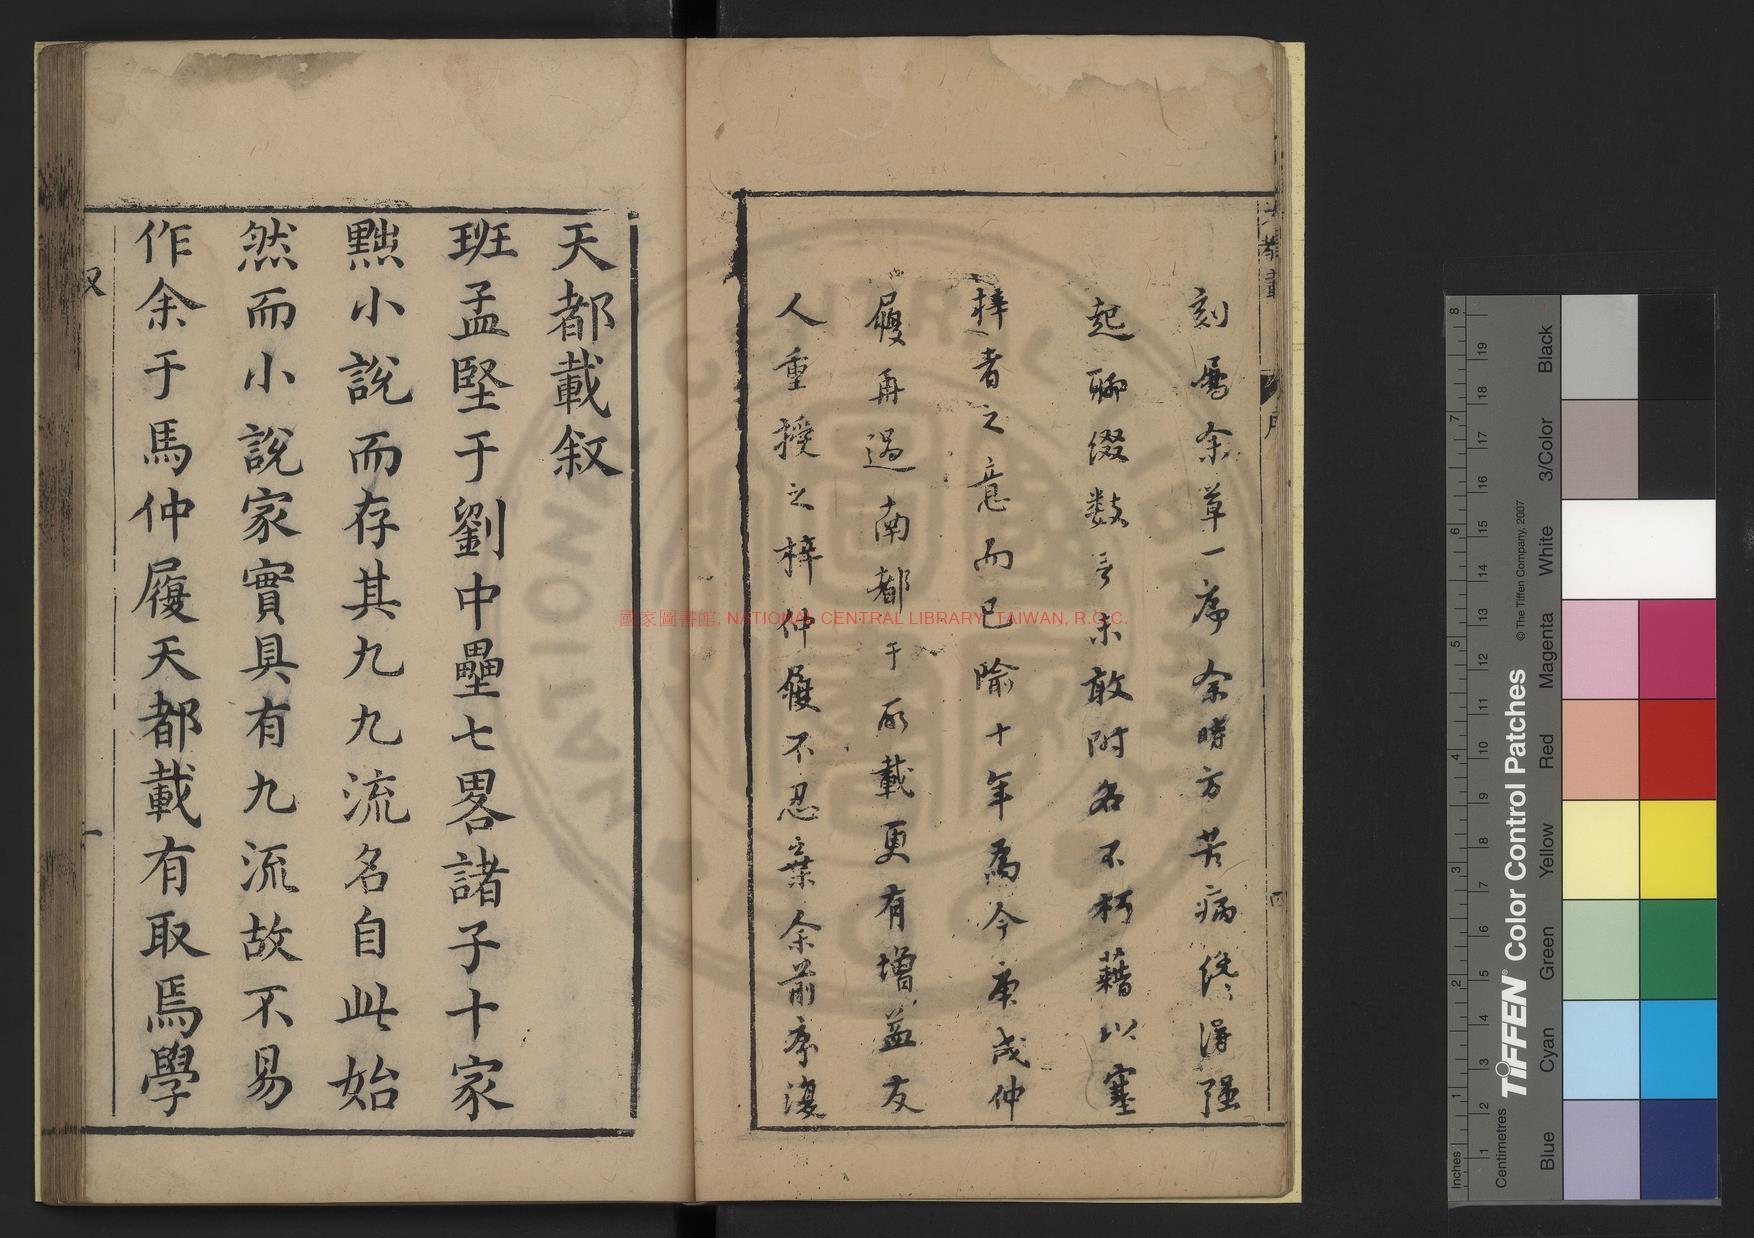 刻屬余草一序余時方苦病從得强
起聊綴數言未敢附名不朽藉以塞
梓者之意而已隃十年為今庚戌仲
履再過南都予所載更有增益友
人重授之梓仲履不忍棄余前序復
天都載叙
班孟堅于劉中壘七畧諸子十家
黜小說而存其九九流名自此始
然而小說家實具有九流故不易
作余于馬仲履天都載有取焉學
國家圖書館, NATIONAL CENTRAL LIBRARY, TAIWAN, R.O.C.
TIFFEN Color Control Patches
© The Tiffen Company, 2007
Inches
Centimetres
Blue
Cyan
Green
Yellow
Red
Magenta
White
3/Color
Black